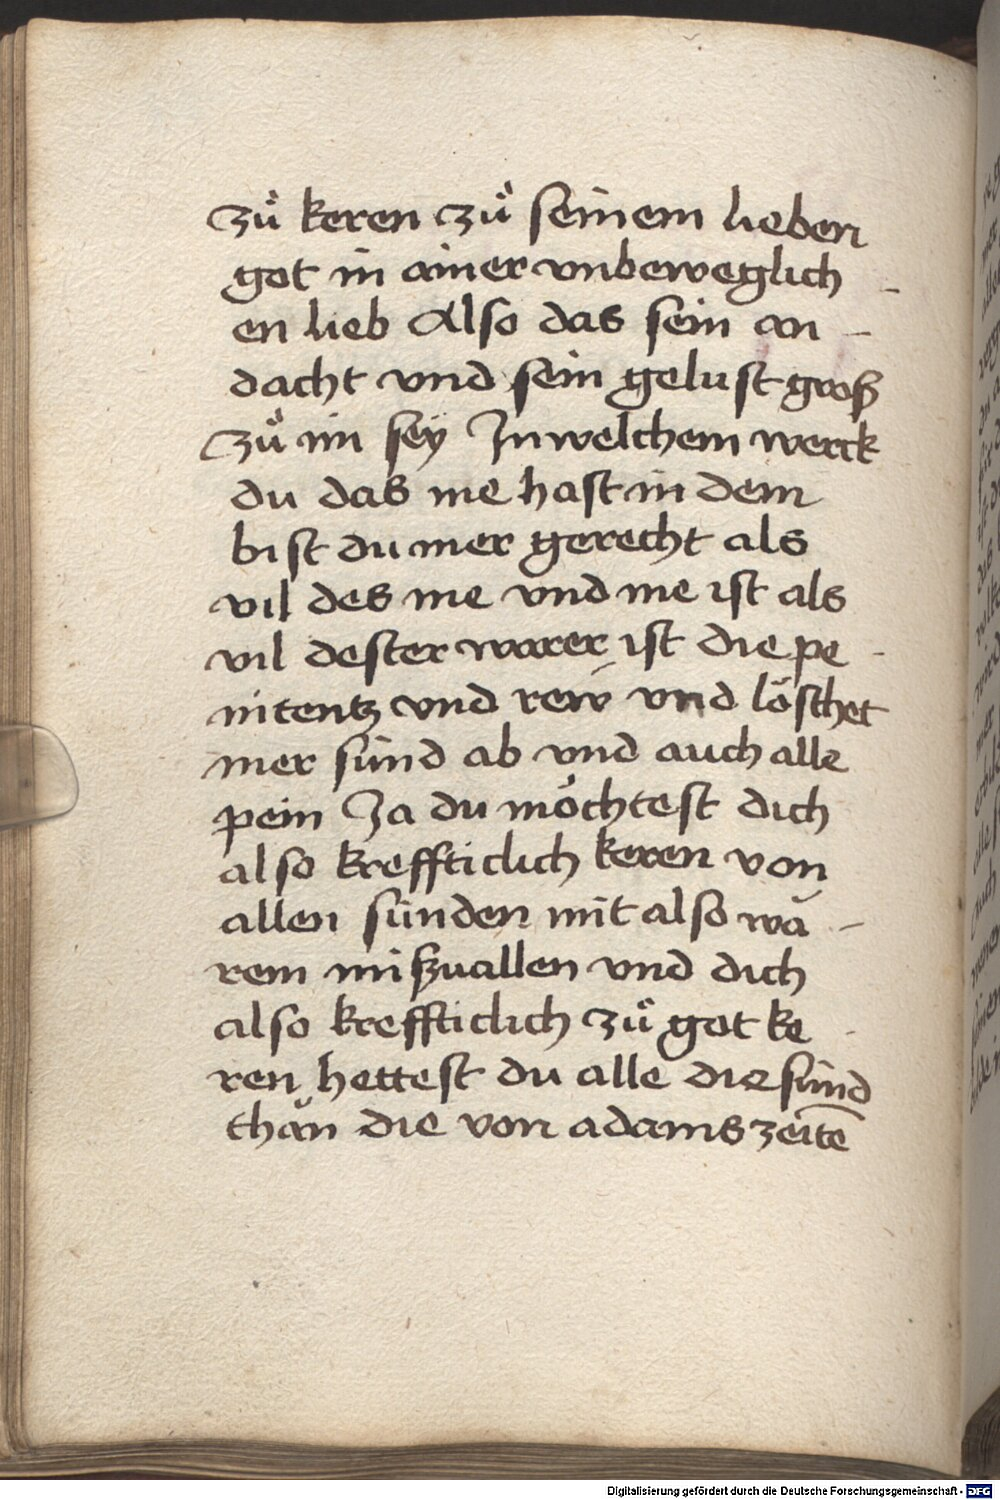 zuͦ keren zuͦ seinem lieben
got in ainer vnbeweglich -
en lieb Also das sein an -
dacht vnd sein gelust groß
zuͦ im seÿ In welchem werck
du das me hast in dem
bist du mer gerecht als
vil des me vnd me ist als
vil dester warer ist die pe -
nitentz vnd rew vnd löschet
mer sünd ab vnd auch alle
pein Ja du möchtest dich
also kreffticlich keren von
allen sünden mit also wa -
rem mißuallen vnd dich
also kreffticlich zuͦ got ke -
ren hettest du alle die sünd
thän die von adams zeitē
Digitalisierung gefördert durch die Deutsche Forschungsgemeinschaft - DFG